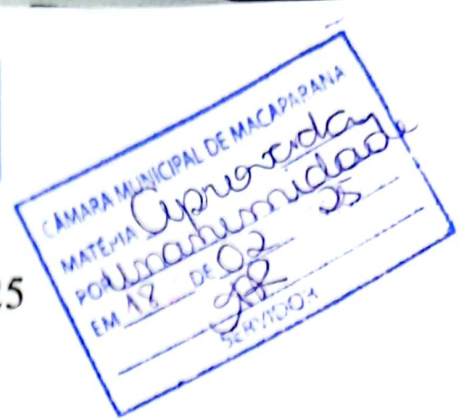 CÂMARA MUNICIPAL DE MACAPARANA
MATÉRIA Aprovada
POR unanimidade
EM 18 DE 02 25
SERVIDOR
5